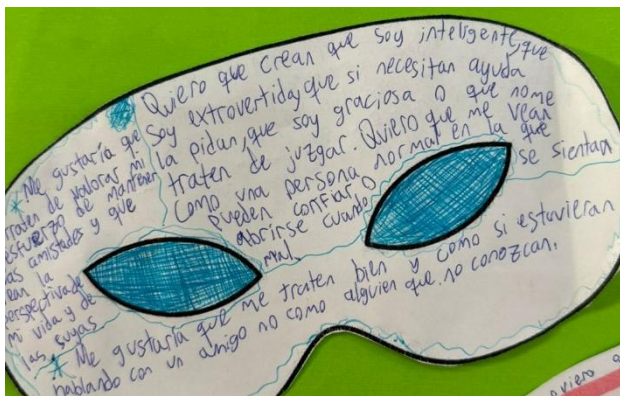 Quiero que crean que soy inteligente, que
soy extrovertida, que si necesitan ayuda
la pidan, que soy graciosa o que no me
traten de juzgar. Quiero que me vean
como una persona normal en la que
pueden confiar o se sientan
abrirse cuando
mal.
* Me gustaría que
traten de valorar mi
esfuerzo de mantener
as amistades y que
ean la
perspectiva de
mi vida y de
las suyas
* Me gustaría que me traten bien y como si estuvieran
hablando con un amigo no como alguien que no conozcan.
quiero